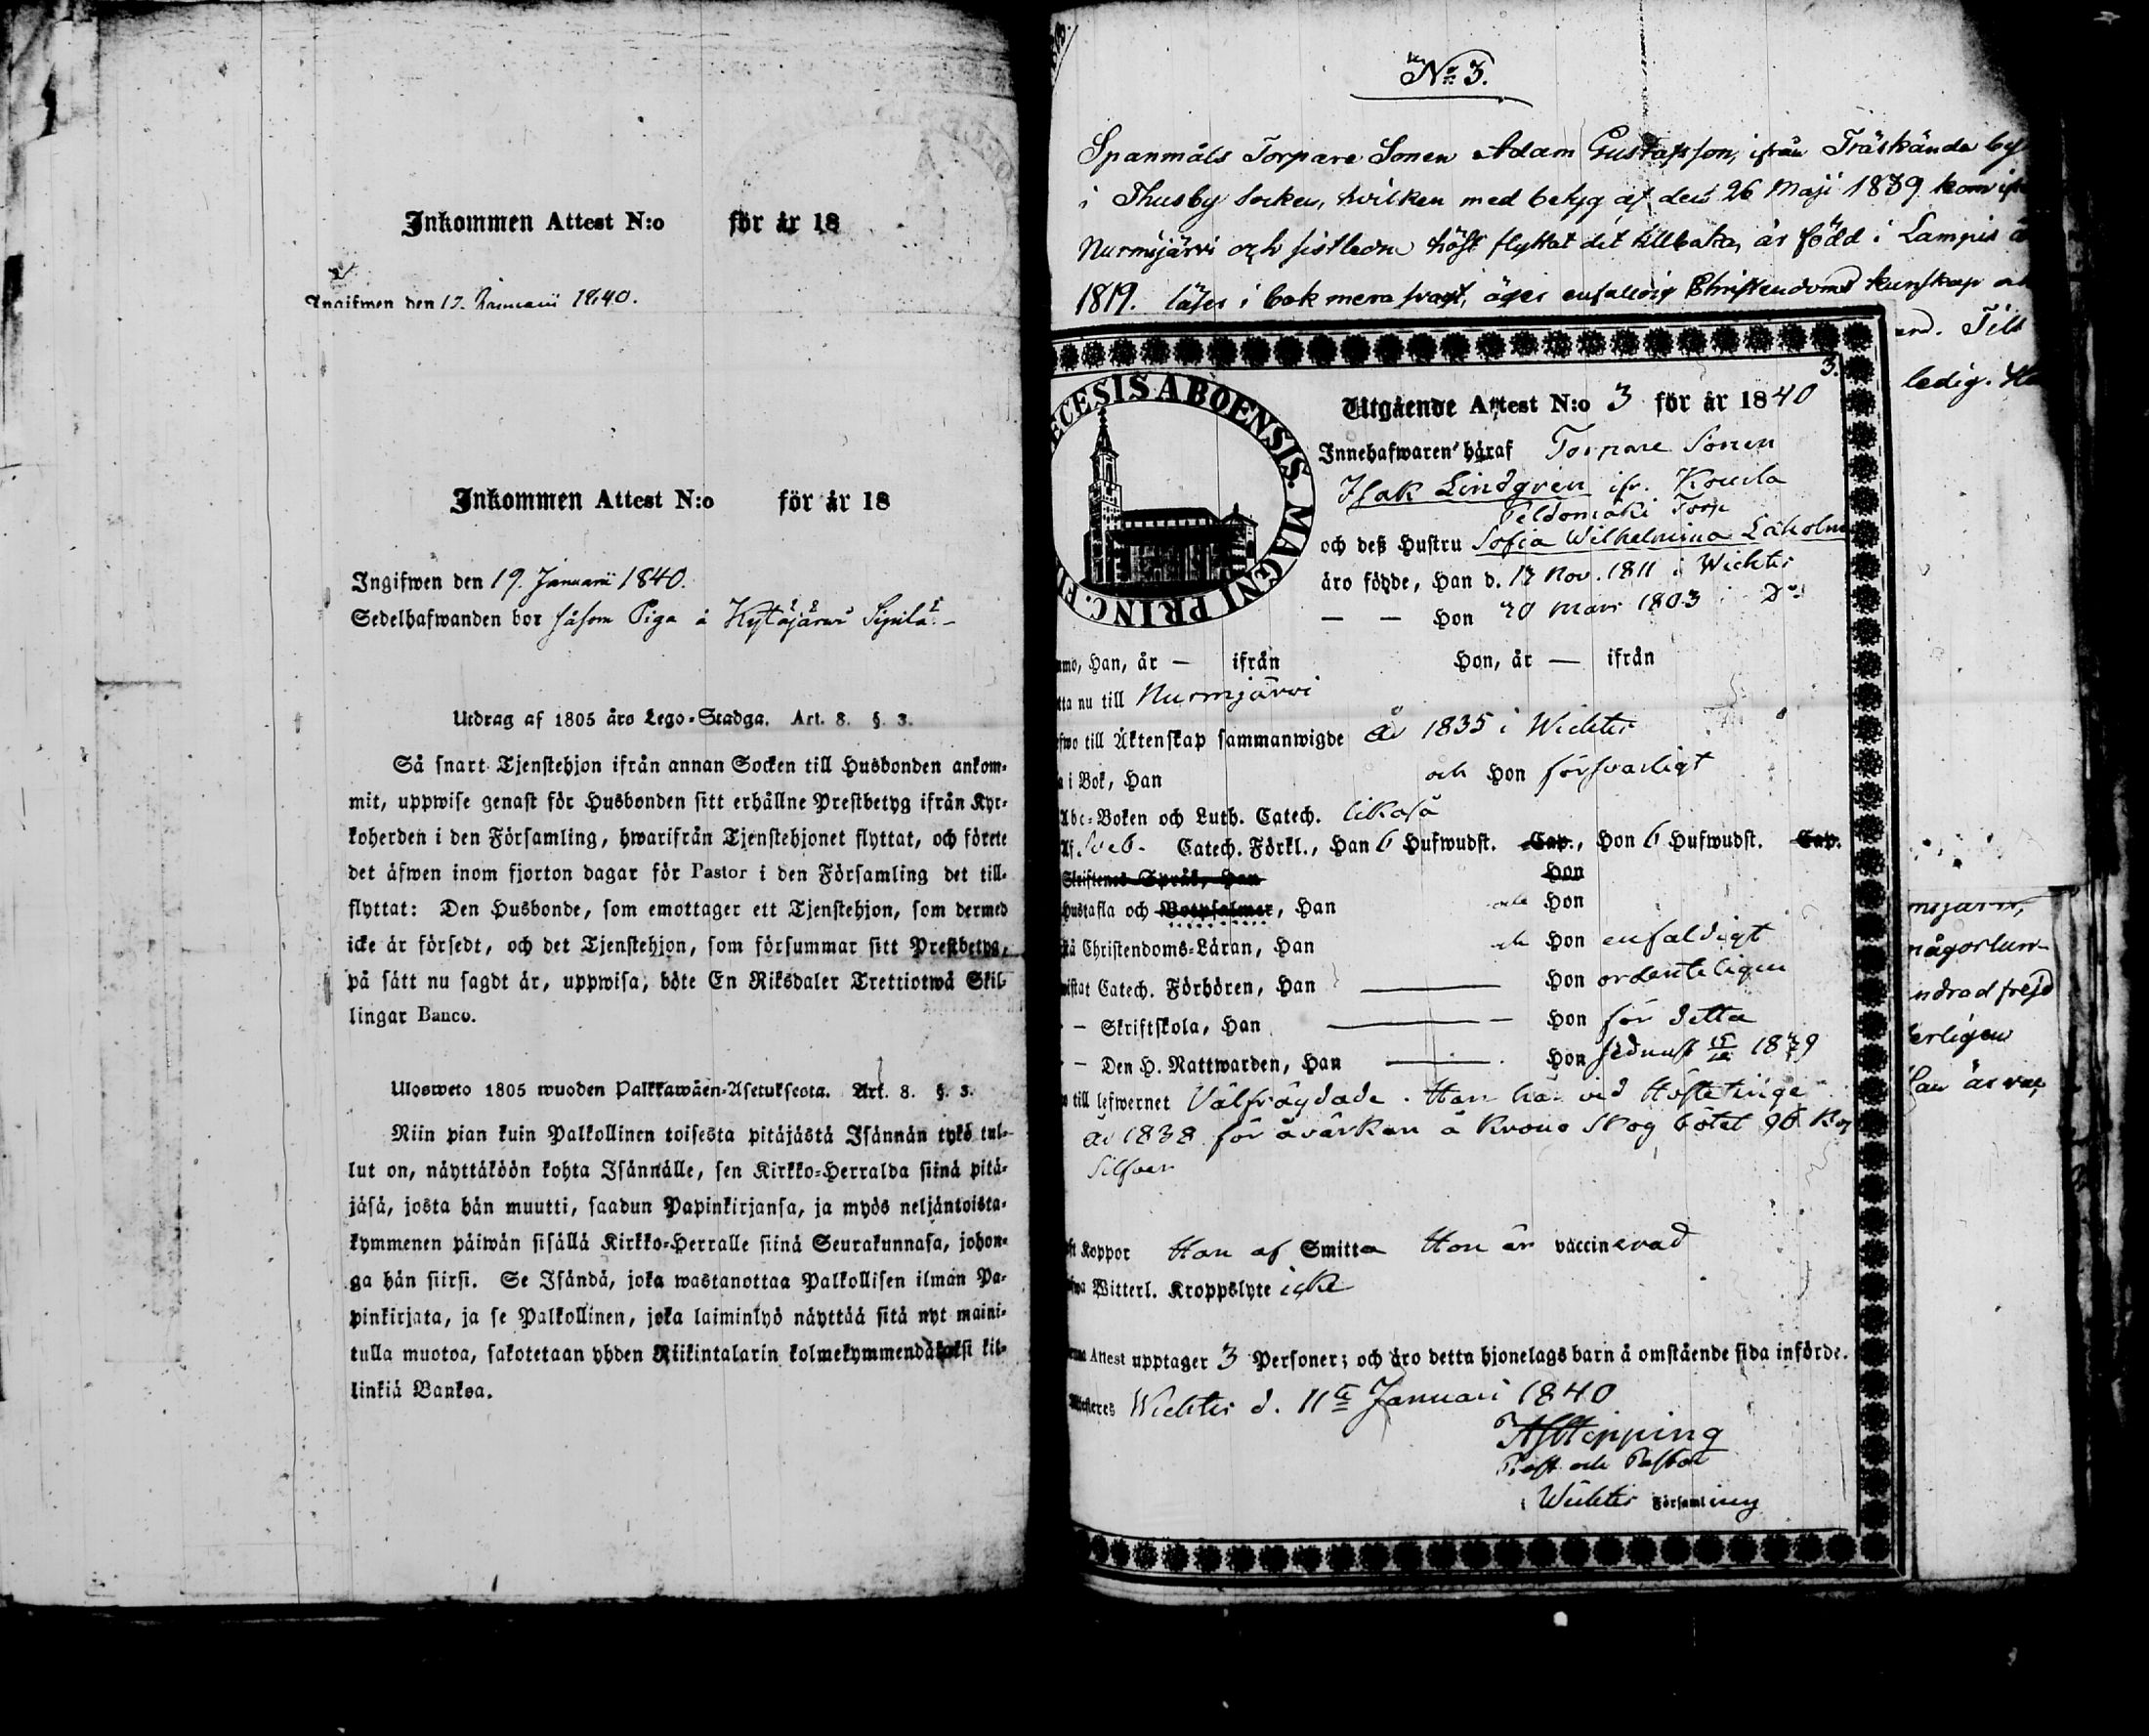 Inkommen Attest N:o för år 18
Ingifwen den 17. Januarii 1840.
Inkommen Attest N:o för år 18
Ingifwen den 19. Januarii 1840.
Sedelhafwanden bor såsom Piga å Hytäjärvi Sipilä. –
Utdrag af 1805 års Lego-Stadga. Art. 8. §. 3.
Så snart Tjenstehjon ifrån annan Socken till Husbonden ankom-
mit, uppwise genast för Husbonden sitt erhållne Prestbetyg ifrån Kyr-
koherden i den Församling, hwarifrån Tjenstehjonet flyttat, och förete
det äfwen inom fjorton dagar för Pastor i den Församling det till-
flyttat: Den Husbonde, som emottager ett Tjenstehjon, som dermed
icke är försedt, och det Tjenstehjon, som försummar sitt Prestbetyg,
på sätt nu sagdt är, uppwisa, böte En Riksdaler Trettiotwå Skil-
lingar Banco.
Ulosweto 1805 wuoden Palkkawäen-Asetuksesta. Art. 8. §. 3.
Niin pian kuin Palkollinen toisesta pitäjästä Isännän tykö tul-
lut on, näyttäköön kohta Isännälle, sen Kirkko-Herralda siinä pitä-
jäsä, josta hän muutti, saadun Papinkirjansa, ja myös neljäntoista-
kymmenen päiwän sisällä Kirkko-Herralle siinä Seurakunnasa, johon-
ga hän siirsi. Se Isändä, joka wastanottaa Palkollisen ilman Pa-
pinkirjata, ja se Palkollinen, joka laiminlyö näyttää sitä nyt maini-
tulla muotoa, sakotetaan yhden Riikintalarin kolmekymmendäkaksi kil-
linkiä Bankoa.
No 3.
Spanmåls Torpare Sonen Adam Gustafsson, ifrån Träskända by
i Thusby Socken, hvilken med betyg af den 26 Maji 1839 kom ifr
Nurmijärvi och sistledne höst flyttat dit tillbaka, är född i Lampis å
1819. läser i bok mera svagt, äger enfaldig Christendoms kunskap och
Till
ledig.
3.
ECESIS ABOENSIS. MAGNI PRINC. F
Utgående Attest N:o 3 för år 1840
Innehafwaren häraf Torpare Sonen
Isak Lindgren ifr. Kourla
Torp
och deß Hustru Sofia Wilhelmina Laholm
äro födde, Han d. 17 Nov. 1811 i Wichtis
— — Hon 20 Mars 1803 i Do
Han, år — ifrån Hon, år — ifrån
tta nu till Nurmijärvi
till Äktenskap sammanwigde år 1835 i Wichtis
i Bok, Han och Hon försvarligt
Abc-Boken och Luth. Catech. likaså
Af Sveb. Catech. Förkl., Han 6 Hufwudst. Cap., Hon 6 Hufwudst. Cap.
Skriftenes Språk, Han Hon
Hustafla och Botpsalmer, Han och Hon
Christendoms-Läran, Han och Hon enfaldigt
istat Catech. Förhören, Han — Hon ordenteligen
– – Skriftskola, Han — Hon för detta
– – Den H. Nattwarden, Han — Hon sednast 1839
till lefwernet Välfräjdade. Han har vid Hösteting
år 1838 för åvärkan å Krono Skog bötat 96 Kop
Silfver
Koppor Han af Smitta Hon är vaccinerad
Witterl. Kroppslyte icke
Attest upptager 3 Personer; och äro detta hjonelags barn å omstående sida införde.
Wichtis d. 11te Januari 1840
Prost och Pastor
i Wichtis Församling
någorlun-
ndrad frejd
erligen
Han är vac